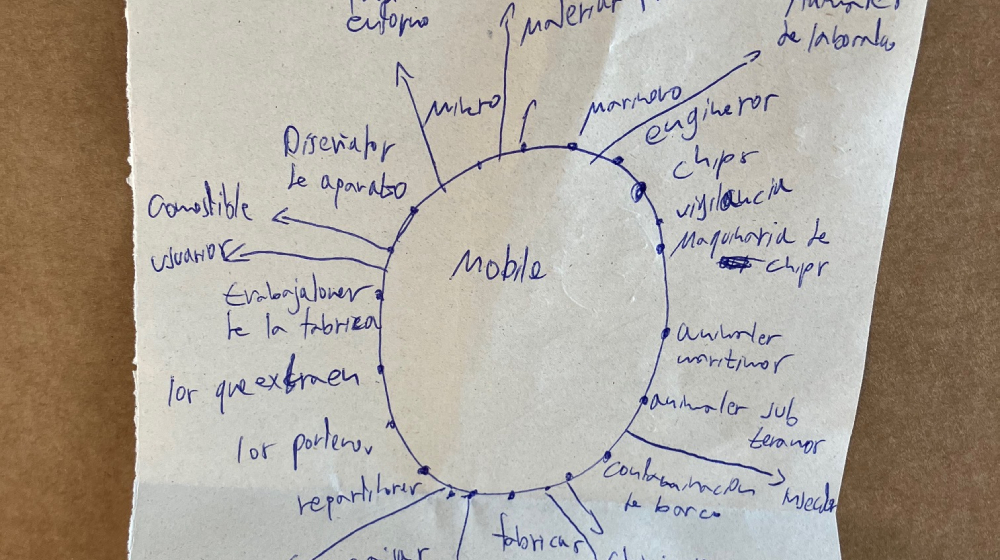 entorno
material
de laborales
mikro
marinovo
engineror
Diseniator
de aparatso
chips
vigilancia
Comostible
Maquinaria de
chips
usuarior
Mobile
trabajadorer
de la fabrica
animaler
maritimor
lor que extraen
animaler sub
teranor
lor porteno,
contaminacion
de barco
repartidorer
fabricas